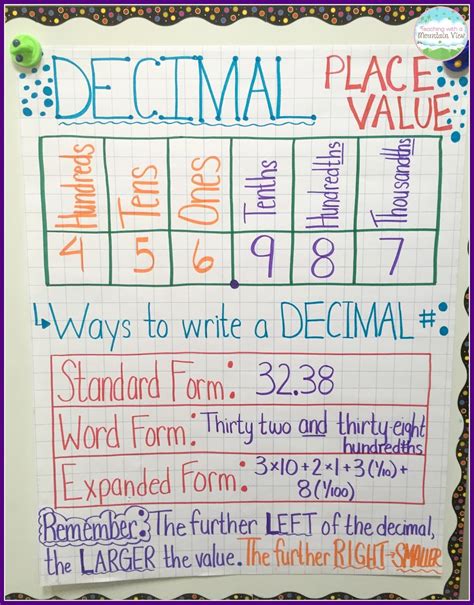 Teaching with a
Mountain View
DECIMAL PLACE
VALUE
Hundreds Tens Ones Tenths Hundredths Thousandths
4 5 6 . 9 8 7
↳Ways to write a DECIMAL #:
Standard Form: 32.38
Word Form: Thirty two and thirty-eight
hundredths
Expanded Form: 3×10+2×1+3(1/10)+
8(1/100)
Remember: The further LEFT of the decimal,
the LARGER the value. The further RIGHT→SMALLER